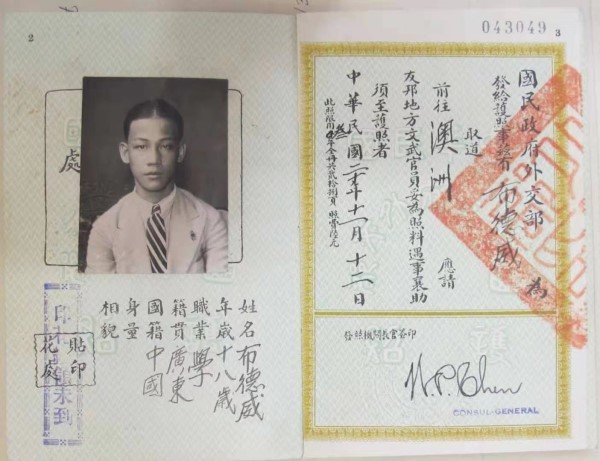 2
處
姓名 布德威
年歲 十八歲
職業 學
籍貫 廣東
國籍 中國
身量
相貌
貼印
花處
043049
3
國民政府外交部
發給護照事茲有 布德威 為
取道
前往 澳洲 應請
友邦地方文武官員妥為照料遇事襄助
須至護照者
中華民國 年十二月十二日
此照限用 年全冊共貳拾捌頁 照費陸元
發照機關長官簽印
W.P. Chen
CONSUL-GENERAL